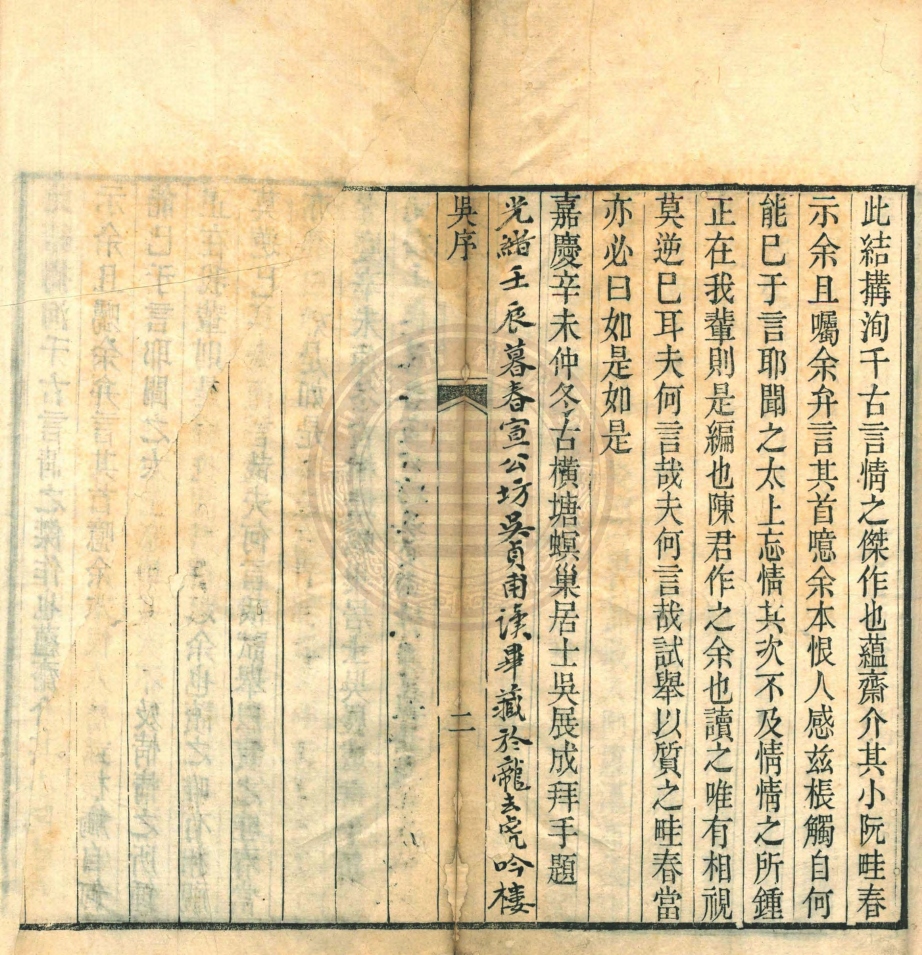 此結搆洵千古言情之傑作也蘊齋介其小阮畦春
示余且囑余弁言其首噫余本恨人感茲棖觸自何
能巳于言耶聞之太上忘情其次不及情情之所鍾
正在我輩則是編也陳君作之余也讀之唯有相視
莫逆巳耳夫何言哉夫何言哉試舉以質之畦春當
亦必曰如是如是
嘉慶辛未仲冬古橫塘螟巢居士吳展成拜手題
光緒壬辰暮春宣公坊吳貞甫讀畢藏於龍去虎吟樓
吳序
二